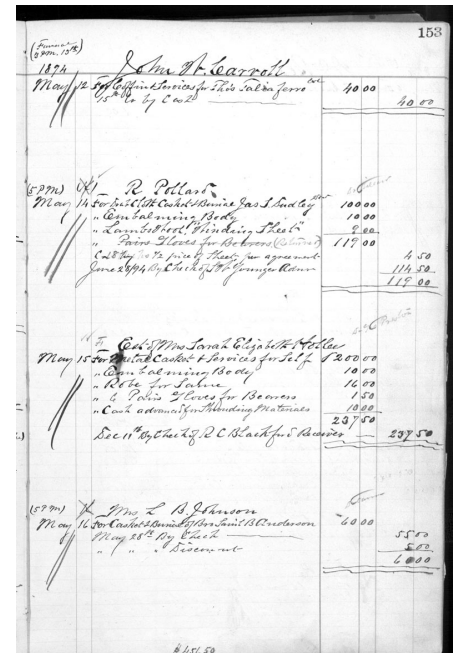 153
(Funeral
3 P.M. 13th)
1894 John W. Carroll
May 12 For Coffin & Services for Thos Taliaferro Col 40 00
15th " by Cash 40 00
(5 P.M.) R Pollard
May 14 For Casket & Burial Jas S Dudley 100 00
" Embalming Body 10 00
" Lambs Wool "Winding Sheet" 9 00
" Pairs Gloves for Bearers (Returned) 119 00
1/2 price of Sheet per agreement 4 50
June 28/94 By Check of Younger Admr 114 50
119 00
Est of Mrs Sarah Elizabeth
May 15 For Metal Casket & Services for Self $ 200 00
" Embalming Body 10 00
" Robe for Same 16 00
" 6 Pairs Gloves for Bearers 1 50
" Cash advanced for Materials 10 00
237 50
Dec 19th By Check of R C Blackford Receiver 237 50
(5 P.M.) Mrs L B Johnson
May 16 For Casket & Burial of Bro Saml B Anderson 60 00
May 28th By Check 55 00
" " " Discount 5 00
60 00
$ 451.50